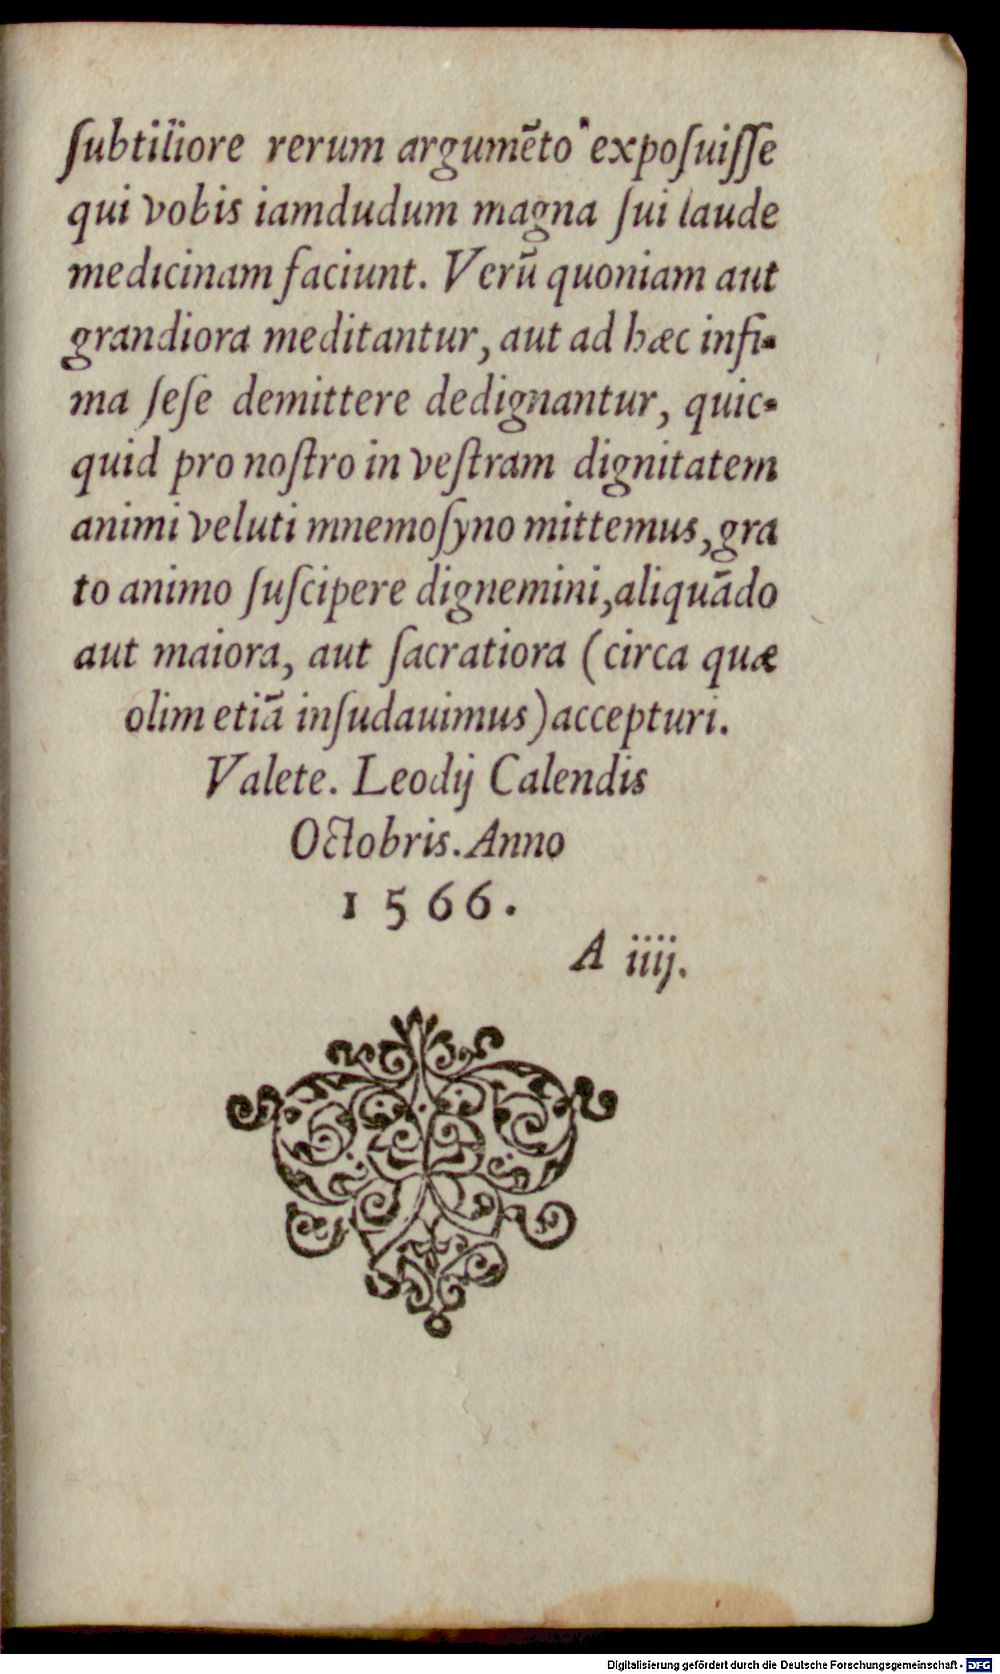 ſubtiliore rerum argumẽto expoſuiſſe
qui vobis iamdudum magna ſui laude
medicinam faciunt. Verũ quoniam aut
grandiora meditantur, aut ad hæc infi-
ma ſeſe demittere dedignantur, quic-
quid pro noſtro in veſtram dignitatem
animi veluti mnemoſyno mittemus, gra
to animo ſuſcipere dignemini, aliquãdo
aut maiora, aut ſacratiora (circa quæ
olim etiã inſudauimus) accepturi.
Valete. Leodij Calendis
Octobris. Anno
1 5 6 6 .
A iiij.
Digitalisierung gefördert durch die Deutsche Forschungsgemeinschaft - DFG